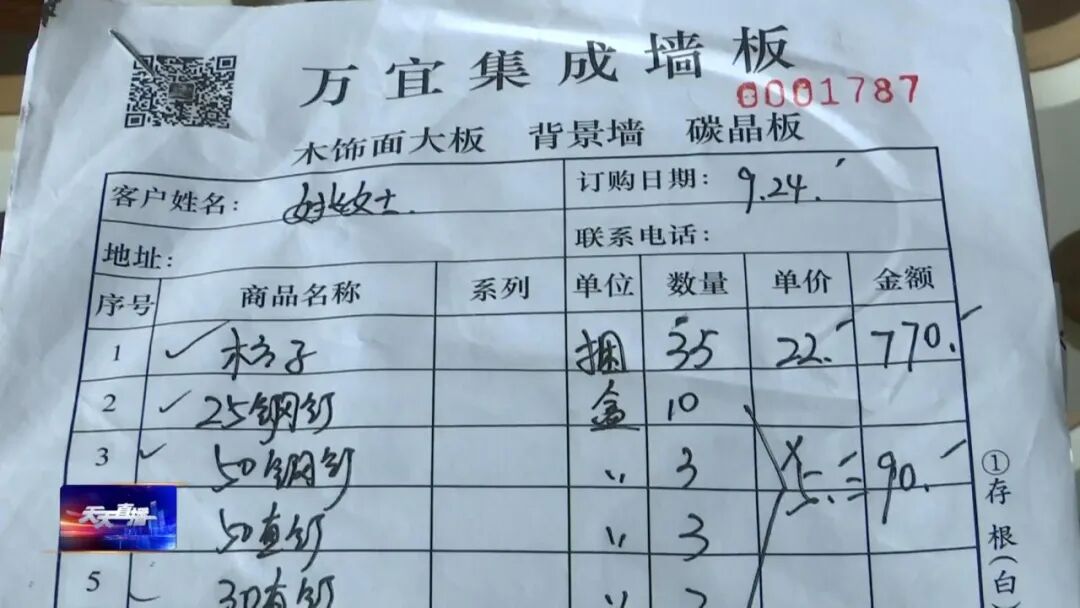 万宜集成墙板
0001787
木饰面大板 背景墙 碳晶板
客户姓名: 姚女士. 订购日期: 9.24.
地址: 联系电话:
序号 商品名称 系列 单位 数量 单价 金额
1 木方子 捆 35 22. 770.
2 25钢钉 盒 10
3 50钢钉 〃 3 ×5.= 90.
50直钉 〃 3
5 30直钉 〃
①存根(白)
天天直播